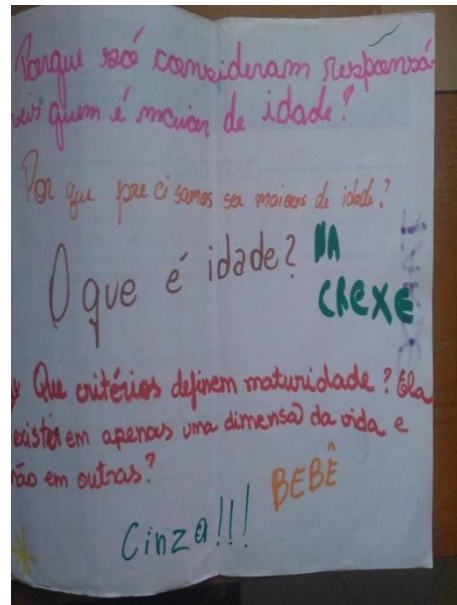 Porque só consideram responsá-
veis quem é maior de idade?
Por que precisamos ser maiores de idade?
O que é idade?
NA
CREXE
Que critérios definem maturidade? Ela
existe em apenas uma dimensão da vida e
não em outras?
BEBÊ
Cinza!!!